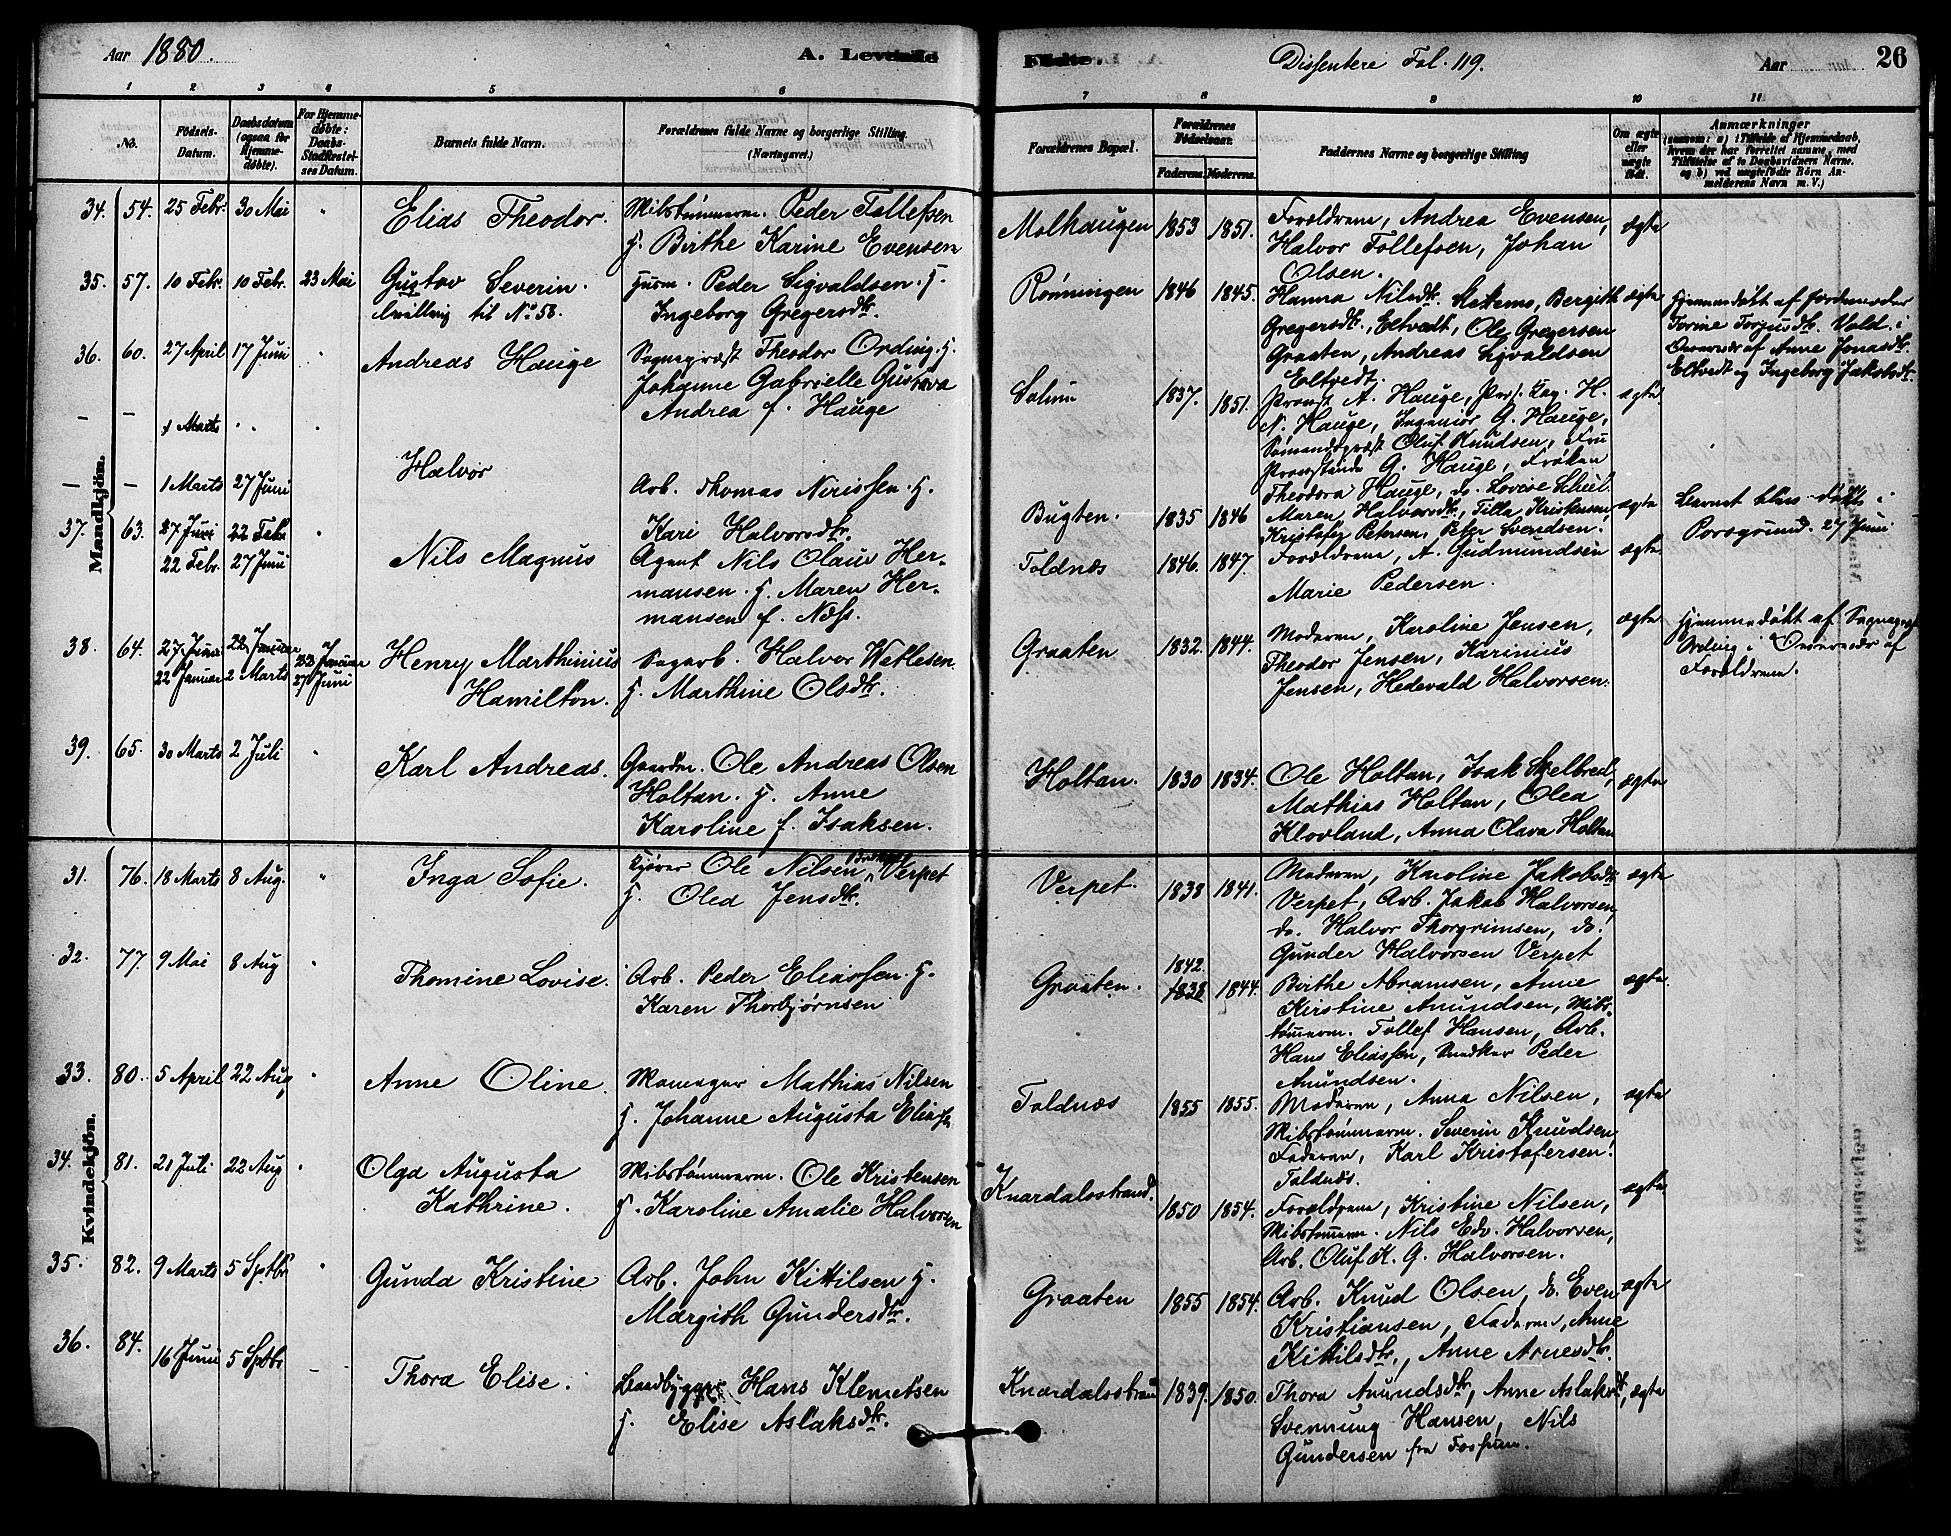 Aar 1880.
A. Levende
Fødte.
Dissentere Fol. 119.
Aar
26
1 2 3 4 5 6 7 8 9 10 11
No.
Fødsels-
Datum.
Daabsdatum
(ogsaa for
Hjemme-
døbte).
For Hjemme-
døbte:
Daabs-
Stadfæstel-
ses Datum.
Barnets fulde Navn.
Forældrenes fulde Navne og borgerlige Stilling.
(Næringsvei.)
Forældrenes Bopæl.
Forældrenes
Fødselsaar.
Faderens. Moderens.
Faddernes Navne og borgerlige Stilling
Om ægte
eller
uægte
født.
Anmærkninger
Mandkjøn.
34. 54. 25 Febr. 30 Mai " Elias Theodor.
Peder Tollefsen
H. Birthe Karine Evensen
Molhaugen 1853 1851.
Forældrene, Andrea Evensen,
Halvor Tollefsen, Johan
Olsen.
ægte
35. 57. 10 Febr. 10 Febr. 23 Mai Gustav Severin.
tvilling til No 58.
Husm. Peder Sigvaldsen. H.
Ingeborg Gregersdtr.
Rønningen 1846 1845.
Hanna Nilsdtr. Bergith
Gregersdtr., Eltvedt, Ole Gregersen
Graaten, Andreas Sigvaldsen
Eltvedt.
ægte
Hjemmedøbt af Jordemoder
Torine Torjusdtr. Vold i
Overvær af Anne Jonasdtr.
Eltvedt og Ingeborg Jakobsdtr.
36. 60. 27 April 17 Juni Andreas Hauge
Sognepræst Theodor Ording. H.
Johanne Gabrielle Gustava
Andrea f. Hauge
Solum 1837. 1851.
Provst A. Hauge, H.
N. Hauge, Ingeniør G. Hauge,
Sømandspræst Oluf Knudsen, Fru
Provstinde G. Hauge, Frøken
Theodora Hauge, do. Lovise
ægte
— — 1 Marts
— — 1 Marts 27 Juni
Halvor
Arb. Thomas Nirissen. H.
Kari Halvorsdtr.
Bugten. 1835 1846
Maren Halvorsdtr., Tilla Kristensen
Kristofer Petersen, Peter Svendsen.
ægte
Barnet blev døbt i
Porsgrund. 27 Juni
37. 63. 27 Juni 22 Febr.
22 Febr. 27 Juni
Nils Magnus
Agent Nils Olaus Her-
mansen. H. Maren Her-
mansen f. Næss.
Toldnæs 1846. 1847.
Forældrene, A. Gudmundsen
Marie Pedersen.
ægte
38. 64. 27 Juni 22 Januar 22 Januar
22 Januar 2 Marts 27 Juni
Henry Marthinius
Hamilton.
Sagarb. Halvor Wetlesen.
H. Marthine Olsdtr.
Graaten 1832. 1844.
Moderen, Karoline Jensen,
Theodor Jensen, Karinius
Jensen, Hedevald Halvorsen.
ægte
Hjemmedøbt af Sognepr.
Ording i Overvær af
Forældrene.
39. 65. 30 Marts 2 Juli " Karl Andreas.
Gaardm. Ole Andreas Olsen
Holtan. H. Anne
Karoline f. Isaksen.
Holtan. 1830 1834.
Ole Holtan, Isak Skelbred,
Mathias Holtan, Olea
Klovland, Anna Olava Holtan
ægte
Kvindekjøn.
31. 76. 18 Marts 8 Aug. " Inga Sofie.
Ole Nilsen Verpet
H. Olea Jensdtr.
Verpet. 1838 1841.
Moderen, Karoline Jakobsdtr.
Verpet, Arb. Jakob Halvorsen,
do. Halvor Thorgrimsen, do.
Gunder Halvorsen Verpet
ægte
32. 77. 9 Mai 8 Aug " Thomine Lovise.
Arb. Peder Eliassen. H.
Karen Thorbjørnsen
Graaten. 1842. 1838 1844.
Birthe Abramsen, Anne
Kirstine Amundsen, Mibs-
tømmerm. Tollef Hansen, Arb.
Hans Eliassen, Snedker Peder
Amundsen.
ægte.
33. 80. 5 April 22 Aug " Anne Oline.
Mathias Nilsen
H. Johanne Augusta Eliass
Toldnæs 1855 1855.
Moderen, Anna Nilsen,
Severin Knudsen,
Faderen, Karl Kristofersen.
Toldnæs.
ægte
34. 81. 21 Juli 22 Aug " Olga Augusta
Kathrine.
Ole Kristensen
H. Karoline Amalie Halvorsen
Knardalsstrand. 1850 1854.
Forældrene, Kristine Nilsen,
Nils Edv. Halvorsen,
Arb. Oluf K. G. Halvorsen.
ægte
35. 82. 9 Marts 5 Septbr " Gunda Kristine
Arb. John Kittilsen H.
Margith Gundersdtr.
Graaten 1855 1854.
Arb. Knud Olsen, do. Even
Kristiansen, Faderen, Anne
Kittilsdtr., Anne Arnesdtr.
ægte
36. 84. 16 Juni 5 Septbr — Thora Elise.
Baadbygger Hans Klemetsen
H. Elise Aslaksdtr.
Knardalsstrand 1839. 1850.
Thora Amundsdtr, Anne Aslaksdtr,
Svennung Hansen, Nils
Gundersen fra Fossum.
ægte